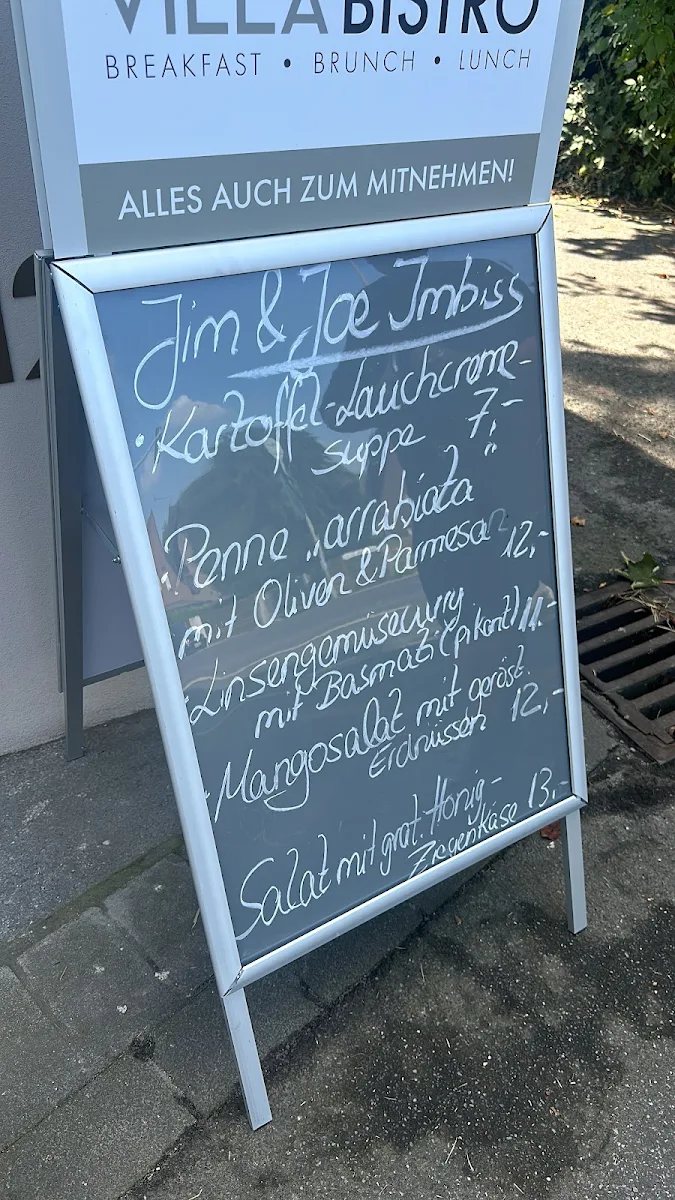 VILLA BISTRO
BREAKFAST • BRUNCH • LUNCH
ALLES AUCH ZUM MITNEHMEN!
Jim & Joe Imbiss
• Kartoffel-Lauchcreme-
suppe 7,-
• Penne „arrabiata"
mit Oliven & Parmesan 12,-
• Linsengemüsecurry
mit Basmati (pikant) 11.-
• Mangosalat mit geröst.
Erdnüssen 12,-
Salat mit grat. Honig-
Ziegenkäse 13,-